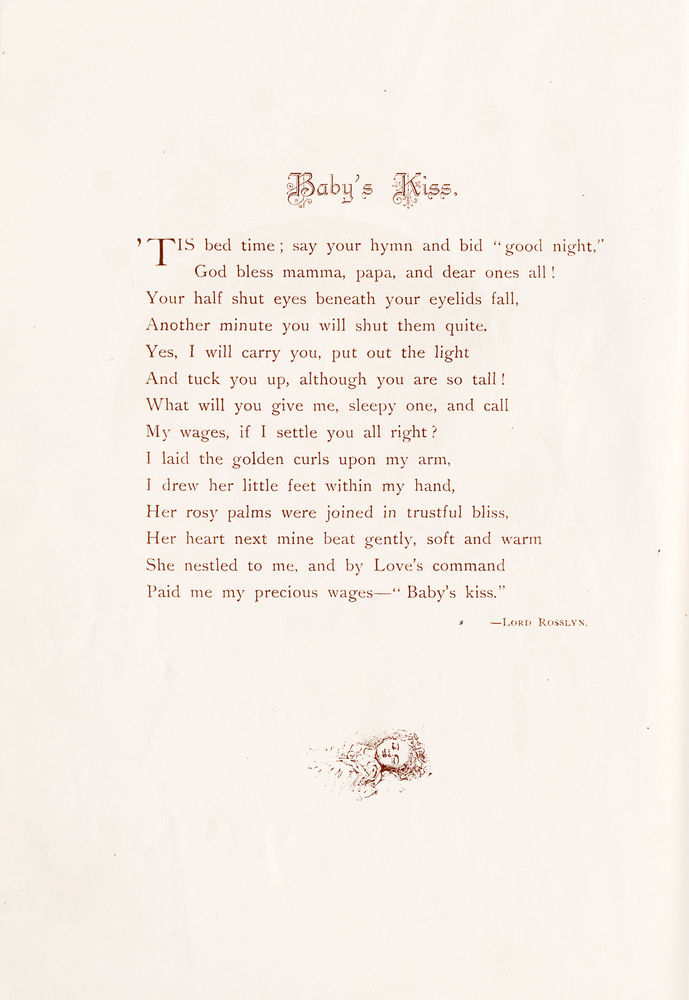 Baby's Kiss.
'TIS bed time; say your hymn and bid "good night,"
God bless mamma, papa, and dear ones all!
Your half shut eyes beneath your eyelids fall,
Another minute you will shut them quite.
Yes, I will carry you, put out the light
And tuck you up, although you are so tall!
What will you give me, sleepy one, and call
My wages, if I settle you all right?
I laid the golden curls upon my arm,
I drew her little feet within my hand,
Her rosy palms were joined in trustful bliss,
Her heart next mine beat gently, soft and warm
She nestled to me, and by Love's command
Paid me my precious wages—"Baby's kiss."
—LORD ROSSLYN.